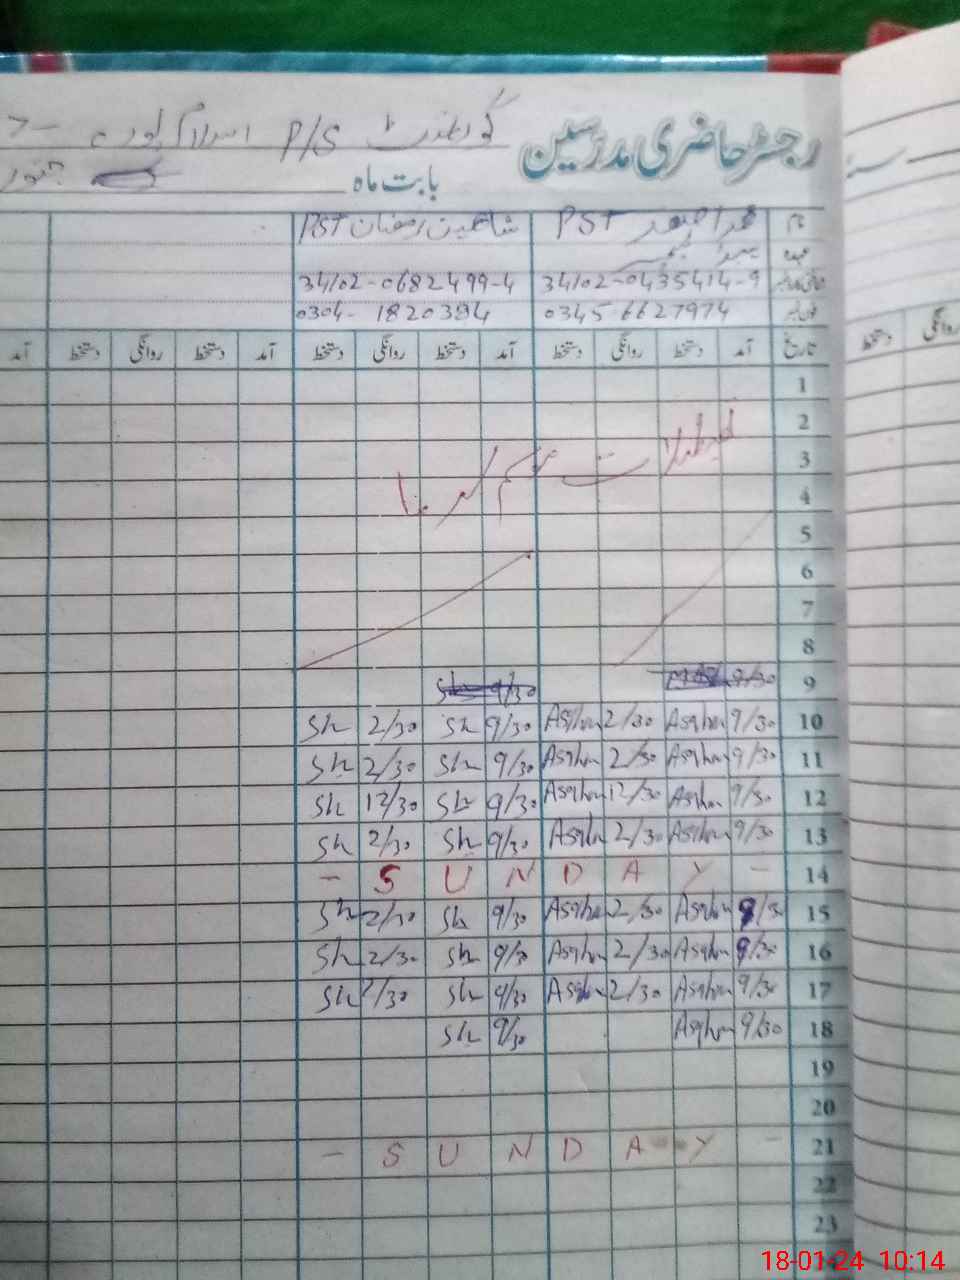 رجسٹر حاضری مدرسین گورنمنٹ P/S اسلام پورہ
بابت ماہ جنوری
نام PST شاھین رمضان PST
عہدہ
34102-0435414-9 34102-0682499-4
فون نمبر 0345 6627974 0304- 1820394
تاریخ آمد دستخط روانگی دستخط آمد دستخط روانگی دستخط آمد دستخط روانگی دستخط آمد
روانگی دستخط
1
2
3
تعطیلات موسم سرما
4
5
6
7
8
9 9/30 9/30 Sh
10 9/30 Asghar 2/30 Asghar 9/30 Sh 2/30 Sh
11 9/30 Asghar 2/30 Asghar 9/30 Sh 2/30 Sh
12 9/30 Asghar 12/30 Asghar 9/30 Sh 12/30 Sh
13 9/30 Asghar 2/30 Asghar 9/30 Sh 2/30 Sh
14 - S U N D A Y -
15 9/30 Asghar 2/30 Asghar 9/30 Sh 2/30 Sh
16 9/30 Asghar 2/30 Asghar 9/30 Sh 2/30 Sh
17 9/30 Asghar 2/30 Asghar 9/30 Sh 2/30 Sh
18 9/30 Asghar 9/30 Sh
19
20
21 - S U N D A Y -
22
23
18-01-24 10:14